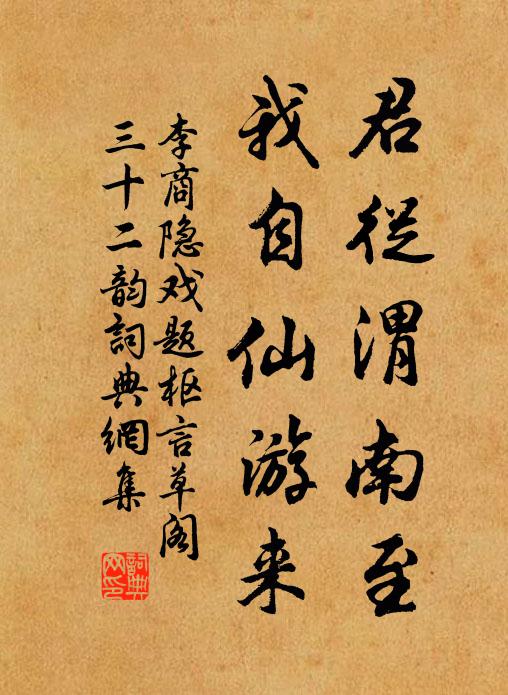 君從渭南至
我自仙游来
李商隐戏题枢言草阁
三十二韵詞典網集
詞典
网印